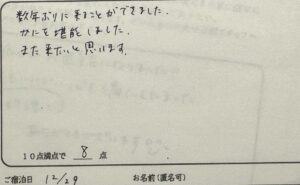 数年ぶりに来ることができました。
かにを堪能しました。
また来たいと思います。
10点満点で 8 点
ご宿泊日 12/29 お名前(匿名可)